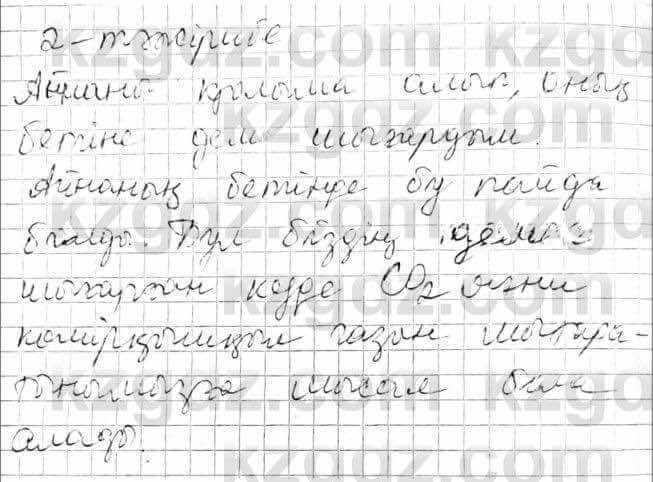 2-тәжірибе
Айнаны қолыма алып, оның
бетіне дем шығардым.
Айнаның бетінде бу пайда
болды. Бұл біздің демді
шығарған кезде CO2 яғни
көмірқышқыл газын шығара-
тынымызға мысал бола
алады.